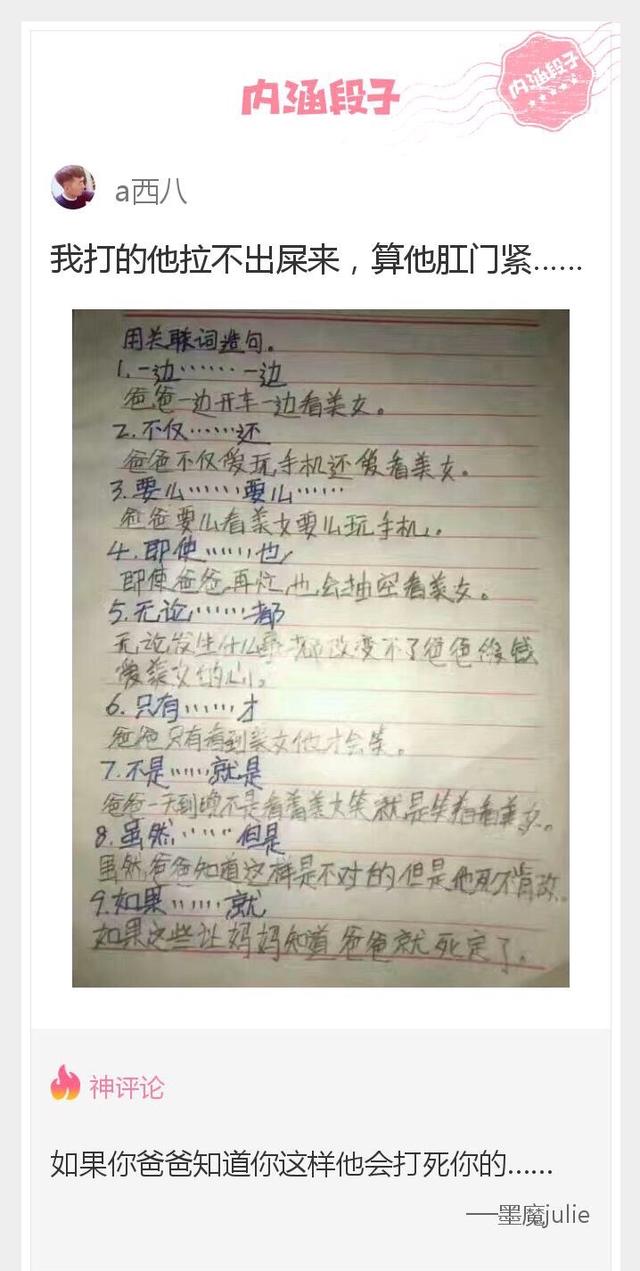 内涵段子
内涵段子
a西八
我打的他拉不出屎来，算他肛门紧……
用关联词造句。
1.一边……一边
爸爸一边开车一边看美女。
2.不仅……还
爸爸不仅爱玩手机还爱看美女。
3.要么……要么……
爸爸要么看美女要么玩手机。
4.即使……也
即使爸爸再忙,也会抽空看美女。
5.无论……都
无论发生什么事都改变不了爸爸
爱美女的心。
6.只有……才
爸爸只有看到美女他才会笑。
7.不是……就是
爸爸一天到晚不是看着美女笑就是笑着看美女。
8.虽然……但是
虽然爸爸知道这样是不对的但是他死不肯改.
9.如果……就
如果这些让妈妈知道爸爸就死定了.
神评论
如果你爸爸知道你这样他会打死你的……
──墨魔julie